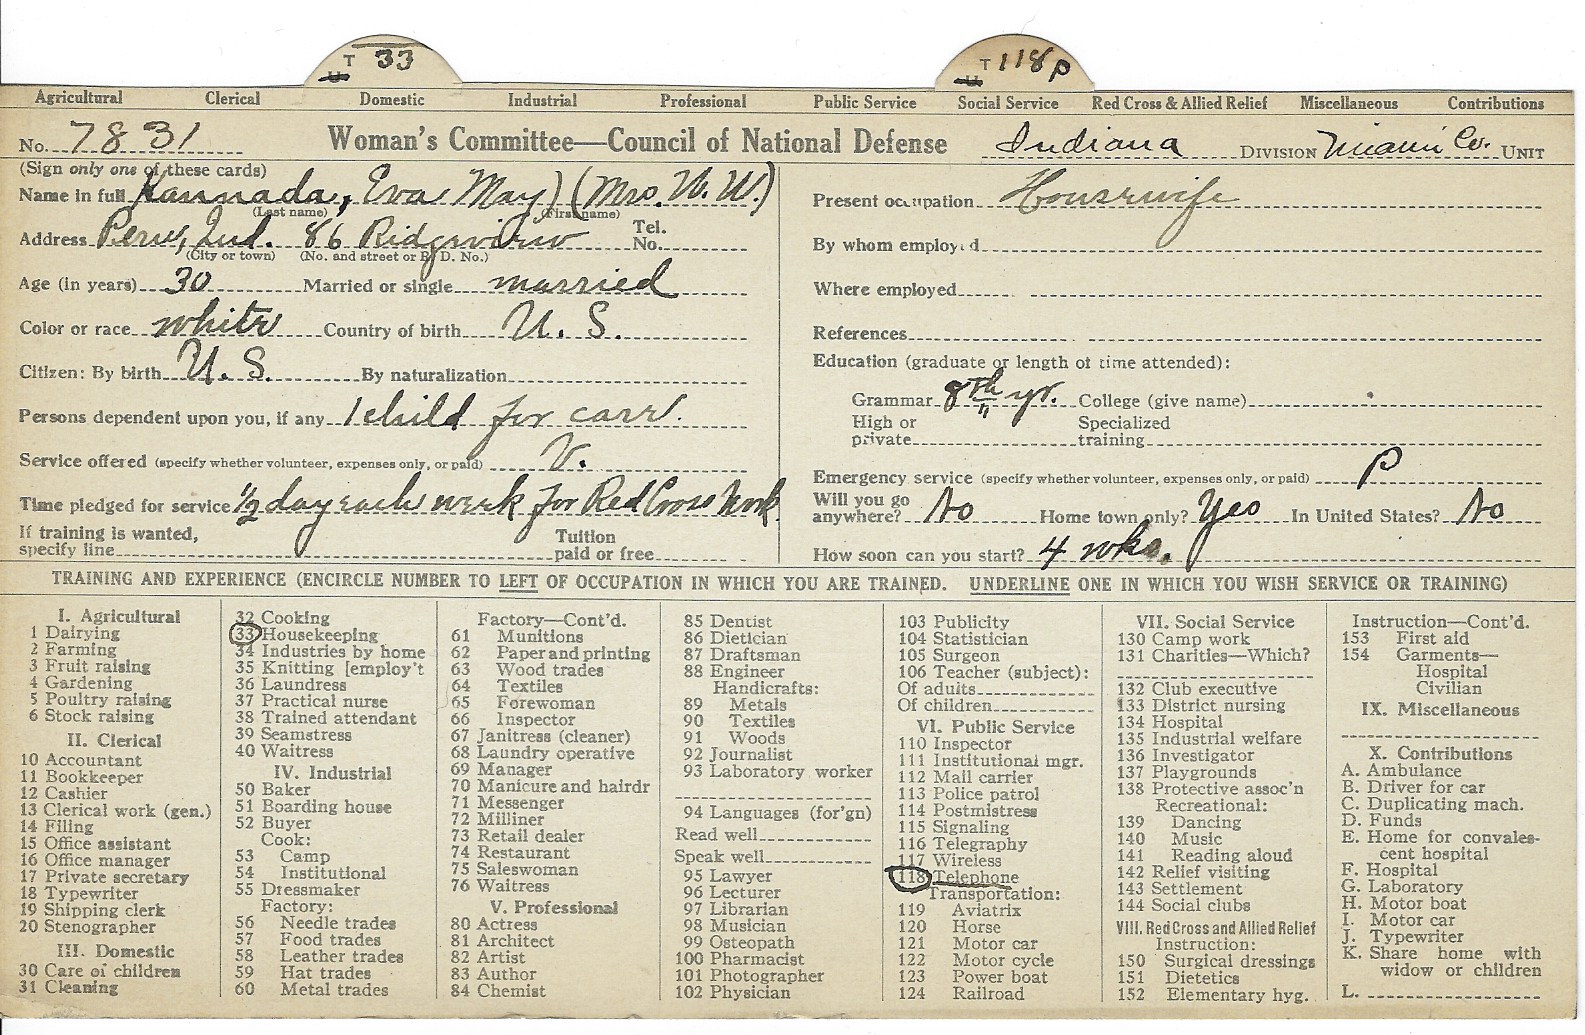 T 33
T 118 P
Agricultural Clerical Domestic Industrial Professional Public Service Social Service Red Cross & Allied Relief Miscellaneous Contributions
No. 7831 Woman's Committee—Council of National Defense Indiana DIVISION Miami Co. UNIT
(Sign only one of these cards)
Name in full Kannada, Eva May) (Mrs. W. W.)
(Last name) (First name)
Address Peru, Ind. 86 Ridgeview Tel. No.
(City or town) (No. and street or R. D. No.)
Age (in years) 30 Married or single married
Color or race white Country of birth U. S.
Citizen: By birth U. S. By naturalization
Persons dependent upon you, if any 1 child for care.
Service offered (specify whether volunteer, expenses only, or paid) V.
Time pledged for service 1/2 day each week for Red Cross Work
If training is wanted, specify line Tuition paid or free
Present occupation Housewife
By whom employed
Where employed
References
Education (graduate or length of time attended):
Grammar 8th yr. College (give name)
High or private Specialized training
Emergency service (specify whether volunteer, expenses only, or paid) P
Will you go anywhere? No Home town only? Yes In United States? No
How soon can you start? 4 wks.
TRAINING AND EXPERIENCE (ENCIRCLE NUMBER TO LEFT OF OCCUPATION IN WHICH YOU ARE TRAINED. UNDERLINE ONE IN WHICH YOU WISH SERVICE OR TRAINING)
I. Agricultural
1 Dairying
2 Farming
3 Fruit raising
4 Gardening
5 Poultry raising
6 Stock raising
II. Clerical
10 Accountant
11 Bookkeeper
12 Cashier
13 Clerical work (gen.)
14 Filing
15 Office assistant
16 Office manager
17 Private secretary
18 Typewriter
19 Shipping clerk
20 Stenographer
III. Domestic
30 Care of children
31 Cleaning
32 Cooking
33 Housekeeping
34 Industries by home
35 Knitting [employ't
36 Laundress
37 Practical nurse
38 Trained attendant
39 Seamstress
40 Waitress
IV. Industrial
50 Baker
51 Boarding house
52 Buyer
Cook:
53 Camp
54 Institutional
55 Dressmaker
Factory:
56 Needle trades
57 Food trades
58 Leather trades
59 Hat trades
60 Metal trades
Factory—Cont'd.
61 Munitions
62 Paper and printing
63 Wood trades
64 Textiles
65 Forewoman
66 Inspector
67 Janitress (cleaner)
68 Laundry operative
69 Manager
70 Manicure and hairdr
71 Messenger
72 Milliner
73 Retail dealer
74 Restaurant
75 Saleswoman
76 Waitress
V. Professional
80 Actress
81 Architect
82 Artist
83 Author
84 Chemist
85 Dentist
86 Dietician
87 Draftsman
88 Engineer
Handicrafts:
89 Metals
90 Textiles
91 Woods
92 Journalist
93 Laboratory worker
94 Languages (for'gn)
Read well
Speak well
95 Lawyer
96 Lecturer
97 Librarian
98 Musician
99 Osteopath
100 Pharmacist
101 Photographer
102 Physician
103 Publicity
104 Statistician
105 Surgeon
106 Teacher (subject):
Of adults
Of children
VI. Public Service
110 Inspector
111 Institutional mgr.
112 Mail carrier
113 Police patrol
114 Postmistress
115 Signaling
116 Telegraphy
117 Wireless
118 Telephone
Transportation:
119 Aviatrix
120 Horse
121 Motor car
122 Motor cycle
123 Power boat
124 Railroad
VII. Social Service
130 Camp work
131 Charities—Which?
132 Club executive
133 District nursing
134 Hospital
135 Industrial welfare
136 Investigator
137 Playgrounds
138 Protective assoc'n
Recreational:
139 Dancing
140 Music
141 Reading aloud
142 Relief visiting
143 Settlement
144 Social clubs
VIII. Red Cross and Allied Relief
Instruction:
150 Surgical dressings
151 Dietetics
152 Elementary hyg.
Instruction—Cont'd.
153 First aid
154 Garments—
Hospital
Civilian
IX. Miscellaneous
X. Contributions
A. Ambulance
B. Driver for car
C. Duplicating mach.
D. Funds
E. Home for convales-
cent hospital
F. Hospital
G. Laboratory
H. Motor boat
I. Motor car
J. Typewriter
K. Share home with
widow or children
L.